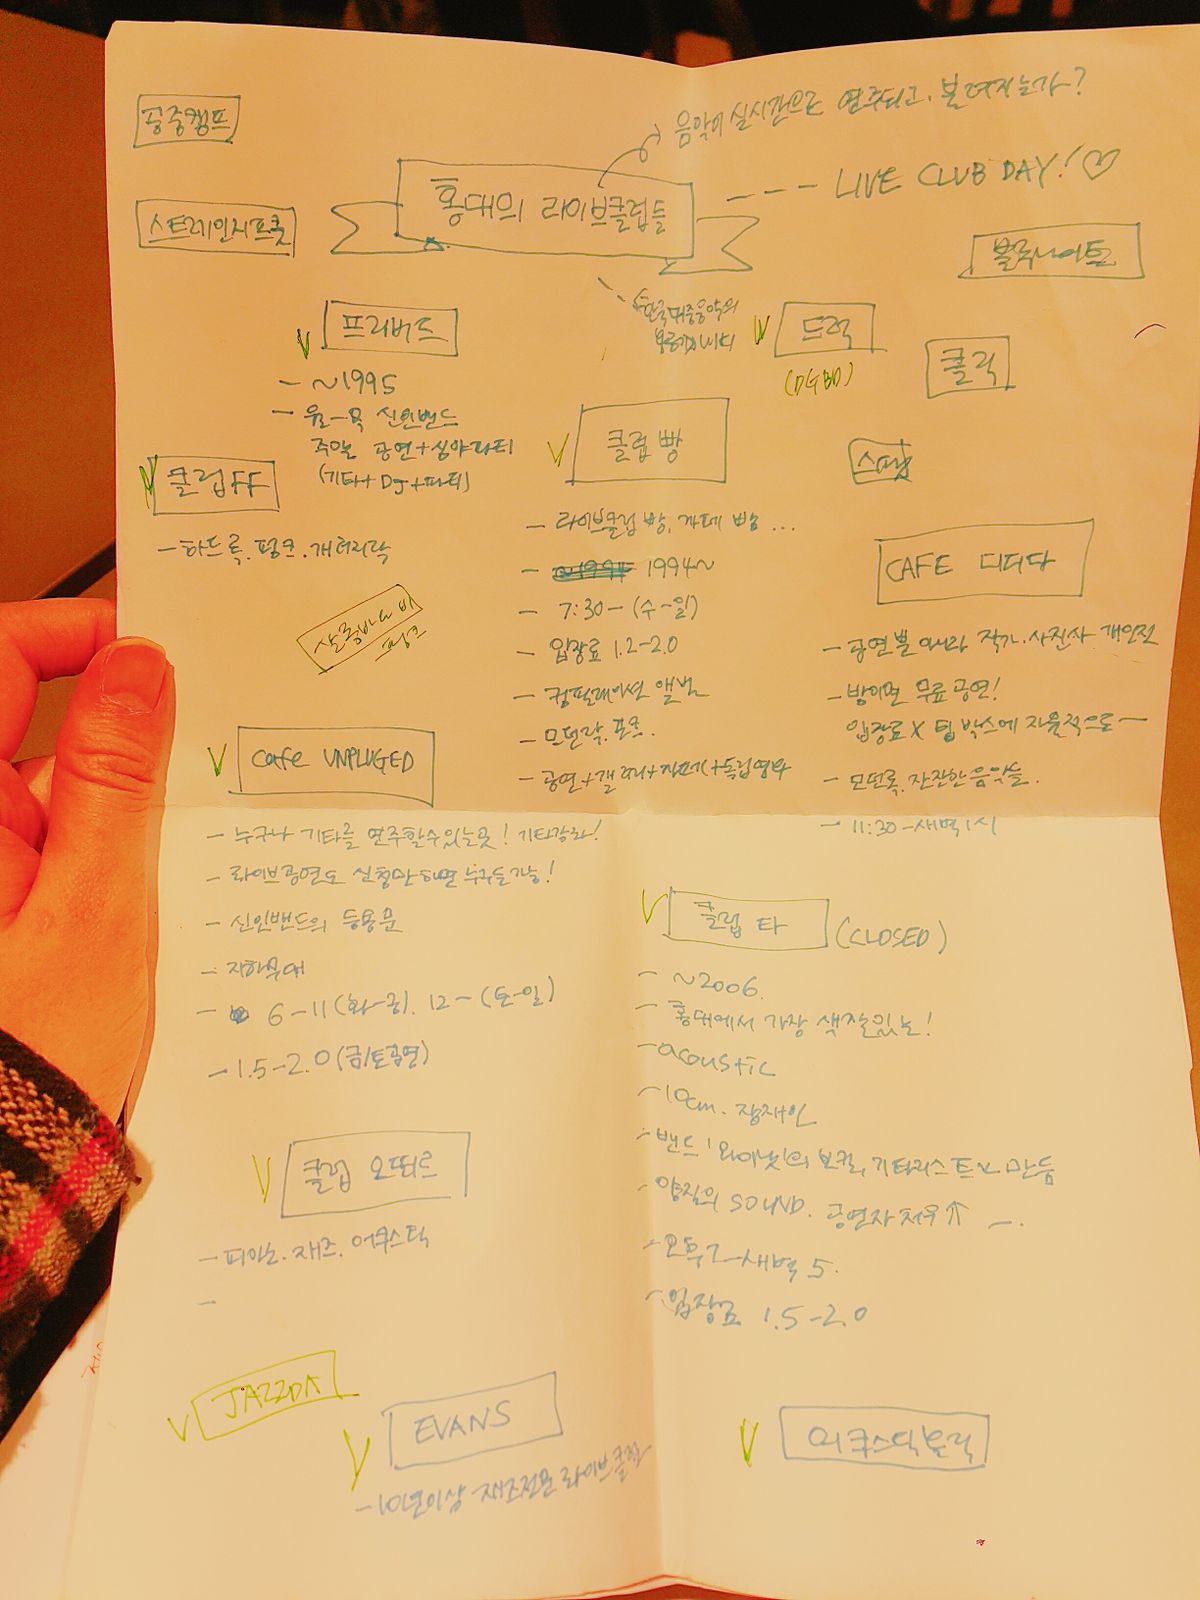 공중캠프
음악이 실시간으로 연주되고, 보여지는가?
홍대의 라이브클럽들
LIVE CLUB DAY!♡
스트레인지프룻
블루나이트
한국대중음악의
프리버드
드럭
(DGBD)
클릭
- ~1995
- 월-목 신인밴드
주말 공연+심야파티
(기타+DJ+파티)
클럽 빵
스팟
클럽 FF
- 하드록. 펑크. 개러지락
- 라이브클럽 빵, 카페 빵...
- 1994~
- 7:30- (수-일)
- 입장료 1.2-2.0
- 컴필레이션 앨범
- 모던락. 포크.
- 공연+갤러리+카페+독립영화
CAFE
- 공연뿐 아니라 작가. 사진사 개인전
- 무료공연!
입장료X 팁 박스에 자율적으로-
- 모던록, 잔잔한 음악들.
- 11:30-새벽1시
살롱바다비
펑크
Cafe UNPLUGED
- 누구나 기타를 연주할 수 있는 곳! 기타강좌!
- 라이브공연도 신청만하면 누구든가능!
- 신인밴드의 등용문
- 지하무대
- 6-11 (화-금). 12- (토-일)
- 1.5-2.0 (금/토공연)
클럽 타
(CLOSED)
- ~2006.
- 홍대에서 가장 색깔있는!
- acoustic
- 10cm. 장재인
- 밴드 '와이낫'의 보컬, 기타리스트 만듬
- 양질의 SOUND. 공연자처우↑ -.
- 오후7-새벽 5.
- 입장료 1.5-2.0
클럽 오뙤르
- 피아노. 재즈. 어쿠스틱
-
JAZZDA
EVANS
- 10년이상 재즈전문 라이브클럽
어쿠스틱홀릭